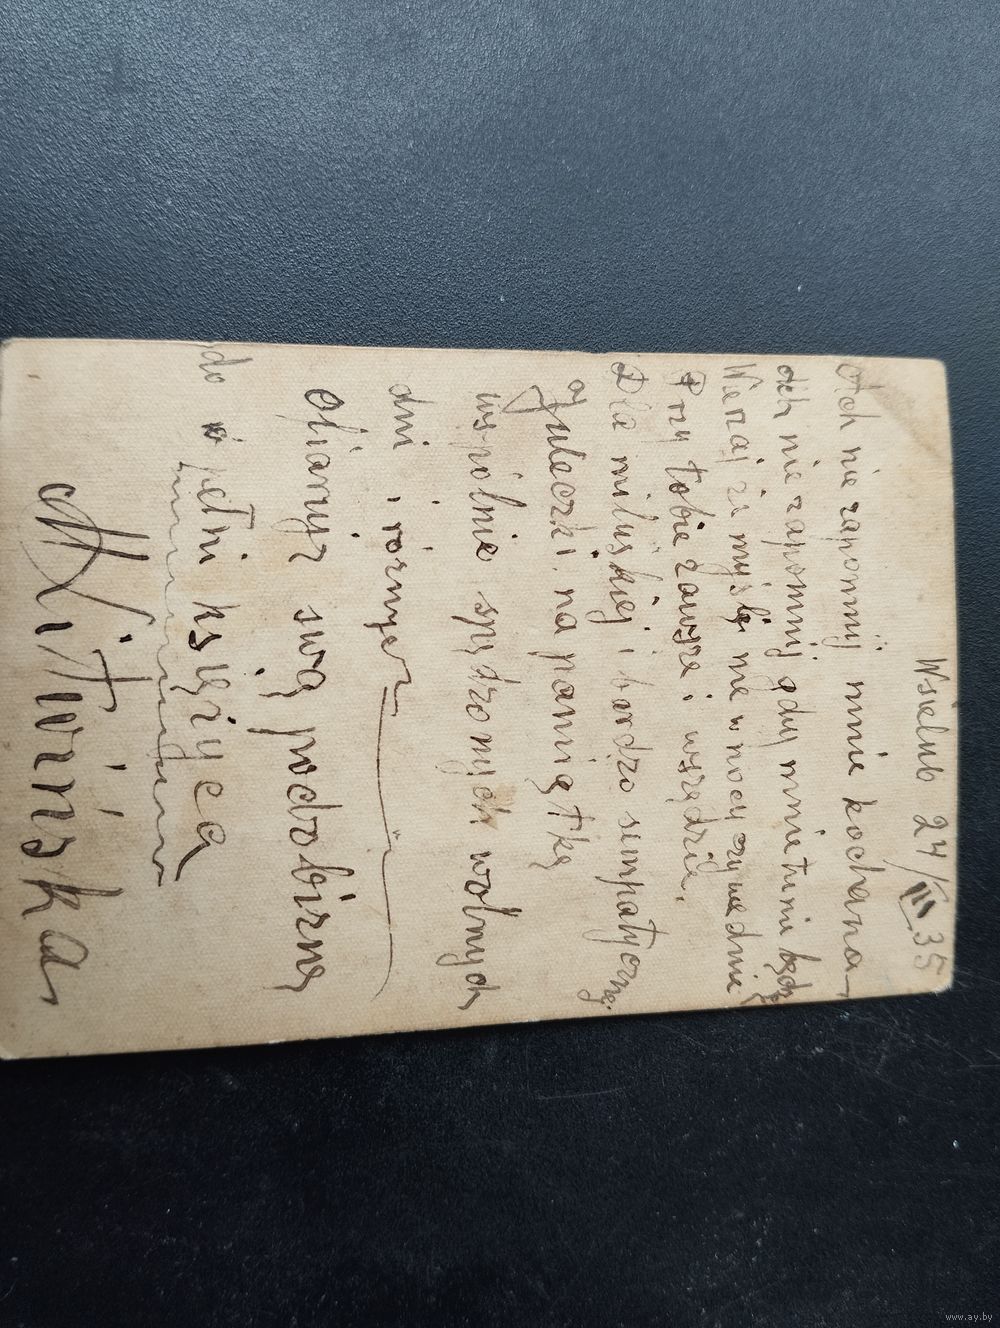 Wsielub 24/III 35
Ach nie zapomnij mnie kochana,
Ach nie zapomnij gdy mnie tu nie będz
Wierzaj że myślę me w nocy czy we dnie
Przy tobie zawsze i wszędzie.
Dla miluśkiej i bardzo sempatycznej
Juleczki na pamiątkę
wspólnie spędzonych wolnych
dni i różnych
ofiaruje swą podobiznę
do pełni księżyca
Litwińska
www.ay.by